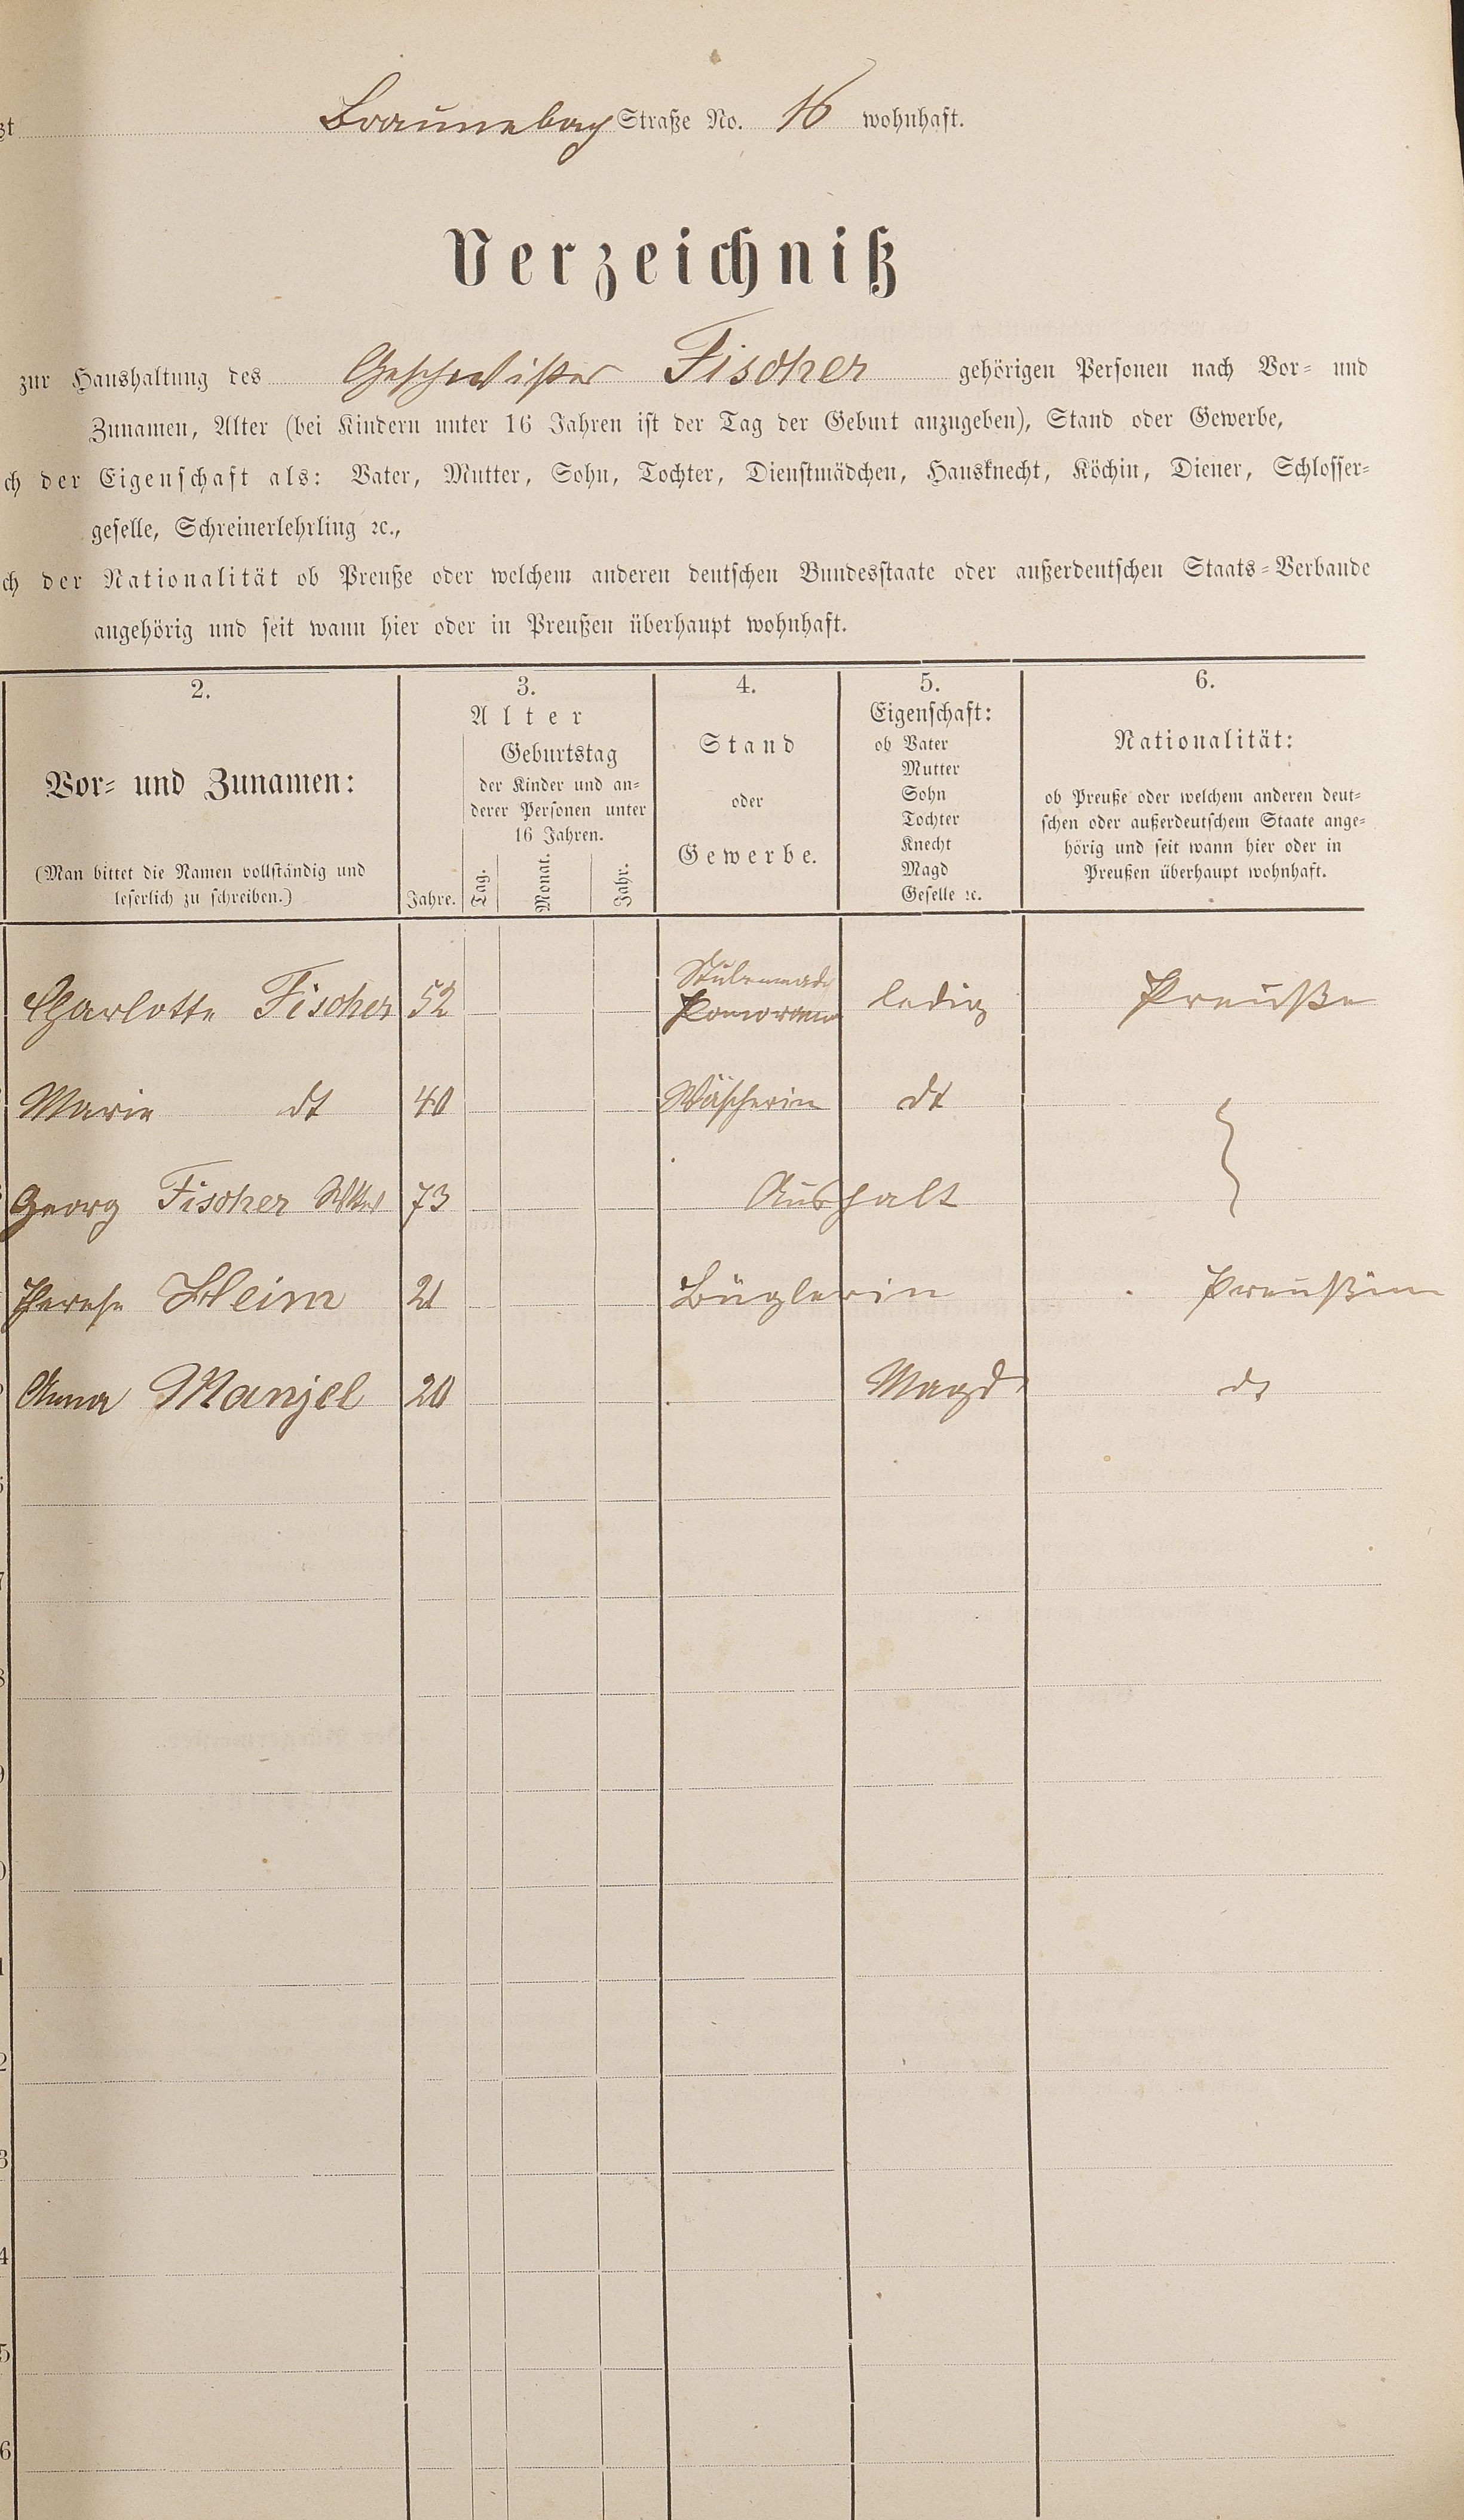 zt Braunebach Straße No. 16 wohnhaft.
Verzeichniß
zur Haushaltung des Geschwister Fischer gehörigen Personen nach Vor- und
Zunamen, Alter (bei Kindern unter 16 Jahren ist der Tag der Geburt anzugeben), Stand oder Gewerbe,
ch der Eigenschaft als: Vater, Mutter, Sohn, Tochter, Dienstmädchen, Hausknecht, Köchin, Diener, Schlosser-
geselle, Schreinerlehrling ꝛc.,
ch der Nationalität ob Preuße oder welchem anderen deutschen Bundesstaate oder außerdeutschen Staats-Verbande
angehörig und seit wann hier oder in Preußen überhaupt wohnhaft.
2.
Vor- und Zunamen:
(Man bittet die Namen vollständig und
leserlich zu schreiben.)
3.
Alter
Geburtstag
der Kinder und an-
derer Personen unter
16 Jahren.
Jahre. Tag. Monat. Jahr.
4.
Stand
oder
Gewerbe.
5.
Eigenschaft:
ob Vater
Mutter
Sohn
Tochter
Knecht
Magd
Geselle ꝛc.
6.
Nationalität:
ob Preuße oder welchem anderen deut-
schen oder außerdeutschem Staate ange-
hörig und seit wann hier oder in
Preußen überhaupt wohnhaft.
Charlotte Fischer 52 ledig Preuße
Marie dt 40 Wäscherin dt
Georg Fischer 73 Aushalt
Therese Heim 21 Büglerin Preußin
Anna Manjel 20 Magd do